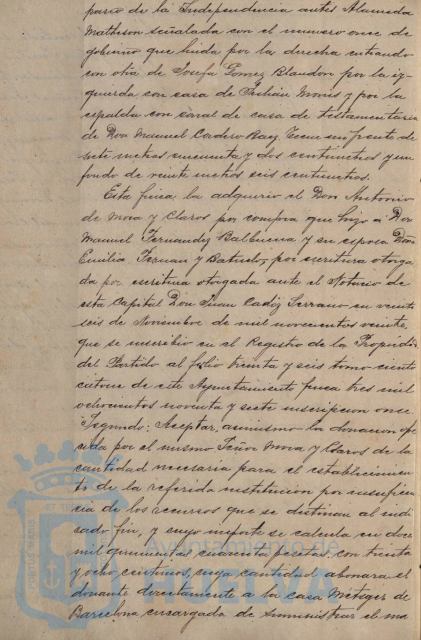 paseo de la Independencia antes Alameda
Matheson señalada con el numero once de
gobierno que linda por la derecha entrando
con otra de Josefa Gomez Blandon por la iz-
quierda con casa de Julian Monis y por la
espalda con corral de casa de testamentaria
de Don Manuel Cordero Bay. Tiene un frente de
siete metros cincuenta y dos centimetros y un
fondo de veinte metros seis centimetros.
Esta finca la adquirio el Don Antonio
de Mora y Claros por compra que hizo a Don
Manuel Fernandez Balbuena y su esposa Doña
Emilia y por escritura otorga
da por escritura otorgada ante el Notario de
esta Capital Don Juan Cadiz Serrano en veinti
seis de Noviembre de mil novecientos veinte,
que se inscribio en el Registro de la Propiedad
del Partido al folio treinta y seis tomo ciento
catorce de este Ayuntamiento finca tres mil
ochocientos noventa y siete inscripcion once.
Segundo: Aceptar, asimismo la donacion ofre
cida por el mismo Señor Mora y Claros de la
cantidad necesaria para el establecimien
to de la referida institucion por insuficien
cia de los recursos que se destinan al indi
cado fin, y cuyo importe se calcula en doce
mil quinientas cuarenta pesetas con treinta
y ocho centimos, cuya cantidad abonara el
donante directamente a la casa Metzger de
Barcelona encargada de suministrar el ma
Ayuntamiento de
HUELVA
PORTUS MARIS